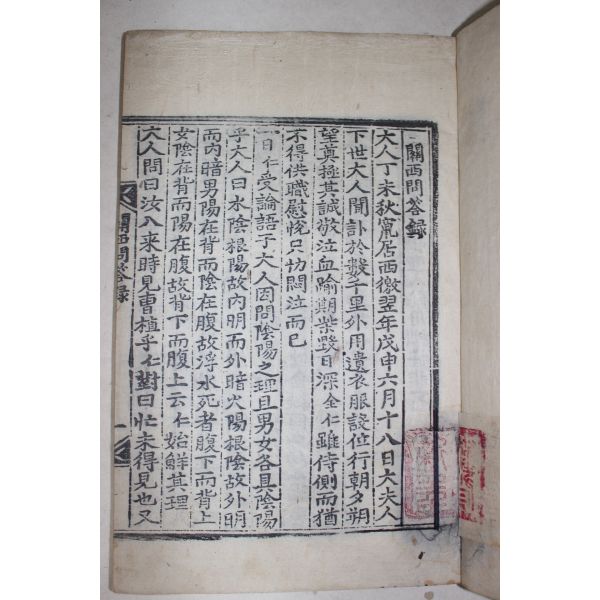 關西問答録
大人丁未秋竄居西徼翌年戊申六月十八日大夫人
下世大人聞訃於數千里外用遺衣服設位行朝夕朔
望奠極其誠敬泣血踰期柴毁日深全仁雖侍側而猶
不得供職慰悅只切悶泣而已
一日仁受論語于大人因問陰陽之理且男女各具陰陽
乎大人曰水陰根陽故內明而外暗火陽根陰故外明
而內暗男陽在背而陰在腹故浮水死者腹下而背上
女陰在背而陽在腹故背下而腹上云仁始觧其理
大人問曰汝入來時見曺植乎仁對曰忙未得見也又
關西問答録
一